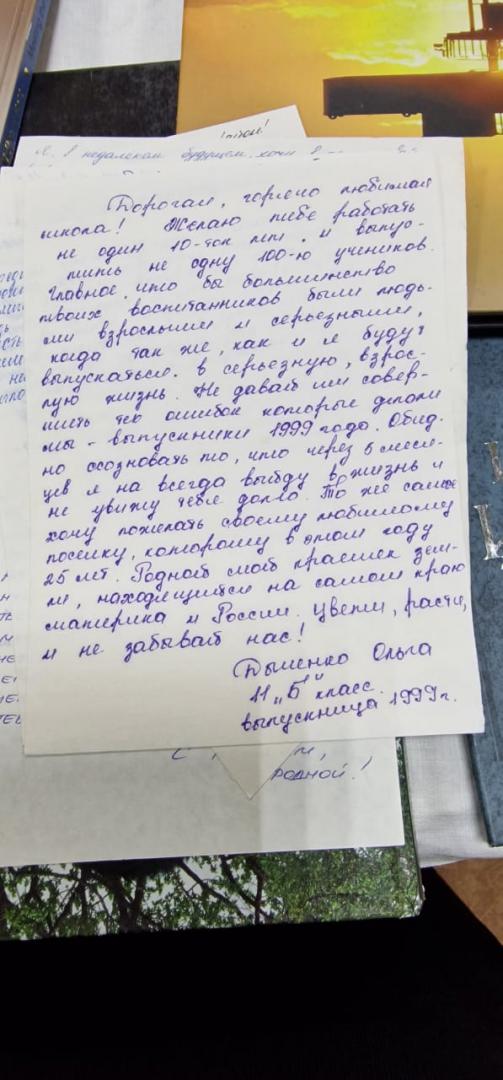 я в недалеком будущем, хочу
Дорогая, горячо любимая
школа! Желаю тебе работать
не один 10-ток лет и выпус-
тить не одну 100-ю учеников.
Главное, что бы большинство
твоих воспитанников были людь-
ми взрослыми и серьезными,
когда так же, как и я будут
выпускаться в серьезную, взрос-
лую жизнь. Не давай им совер-
шить тех ошибок которые делали
мы - выпускники 1999 года. Обид-
но осозновать то, что через 6 меся-
цев я на всегда выйду в жизнь и
не увижу тебя долго. То же самое
хочу пожелать своему любимому
поселку, которому в этом году
25 лет. Родной мой краешек зем-
ли, находящийся на самом краю
материка и России. Цвети, расти,
и не забывай нас!
Дыменко Ольга
11 „Б" класс.
выпускница 1999 г.
родной!